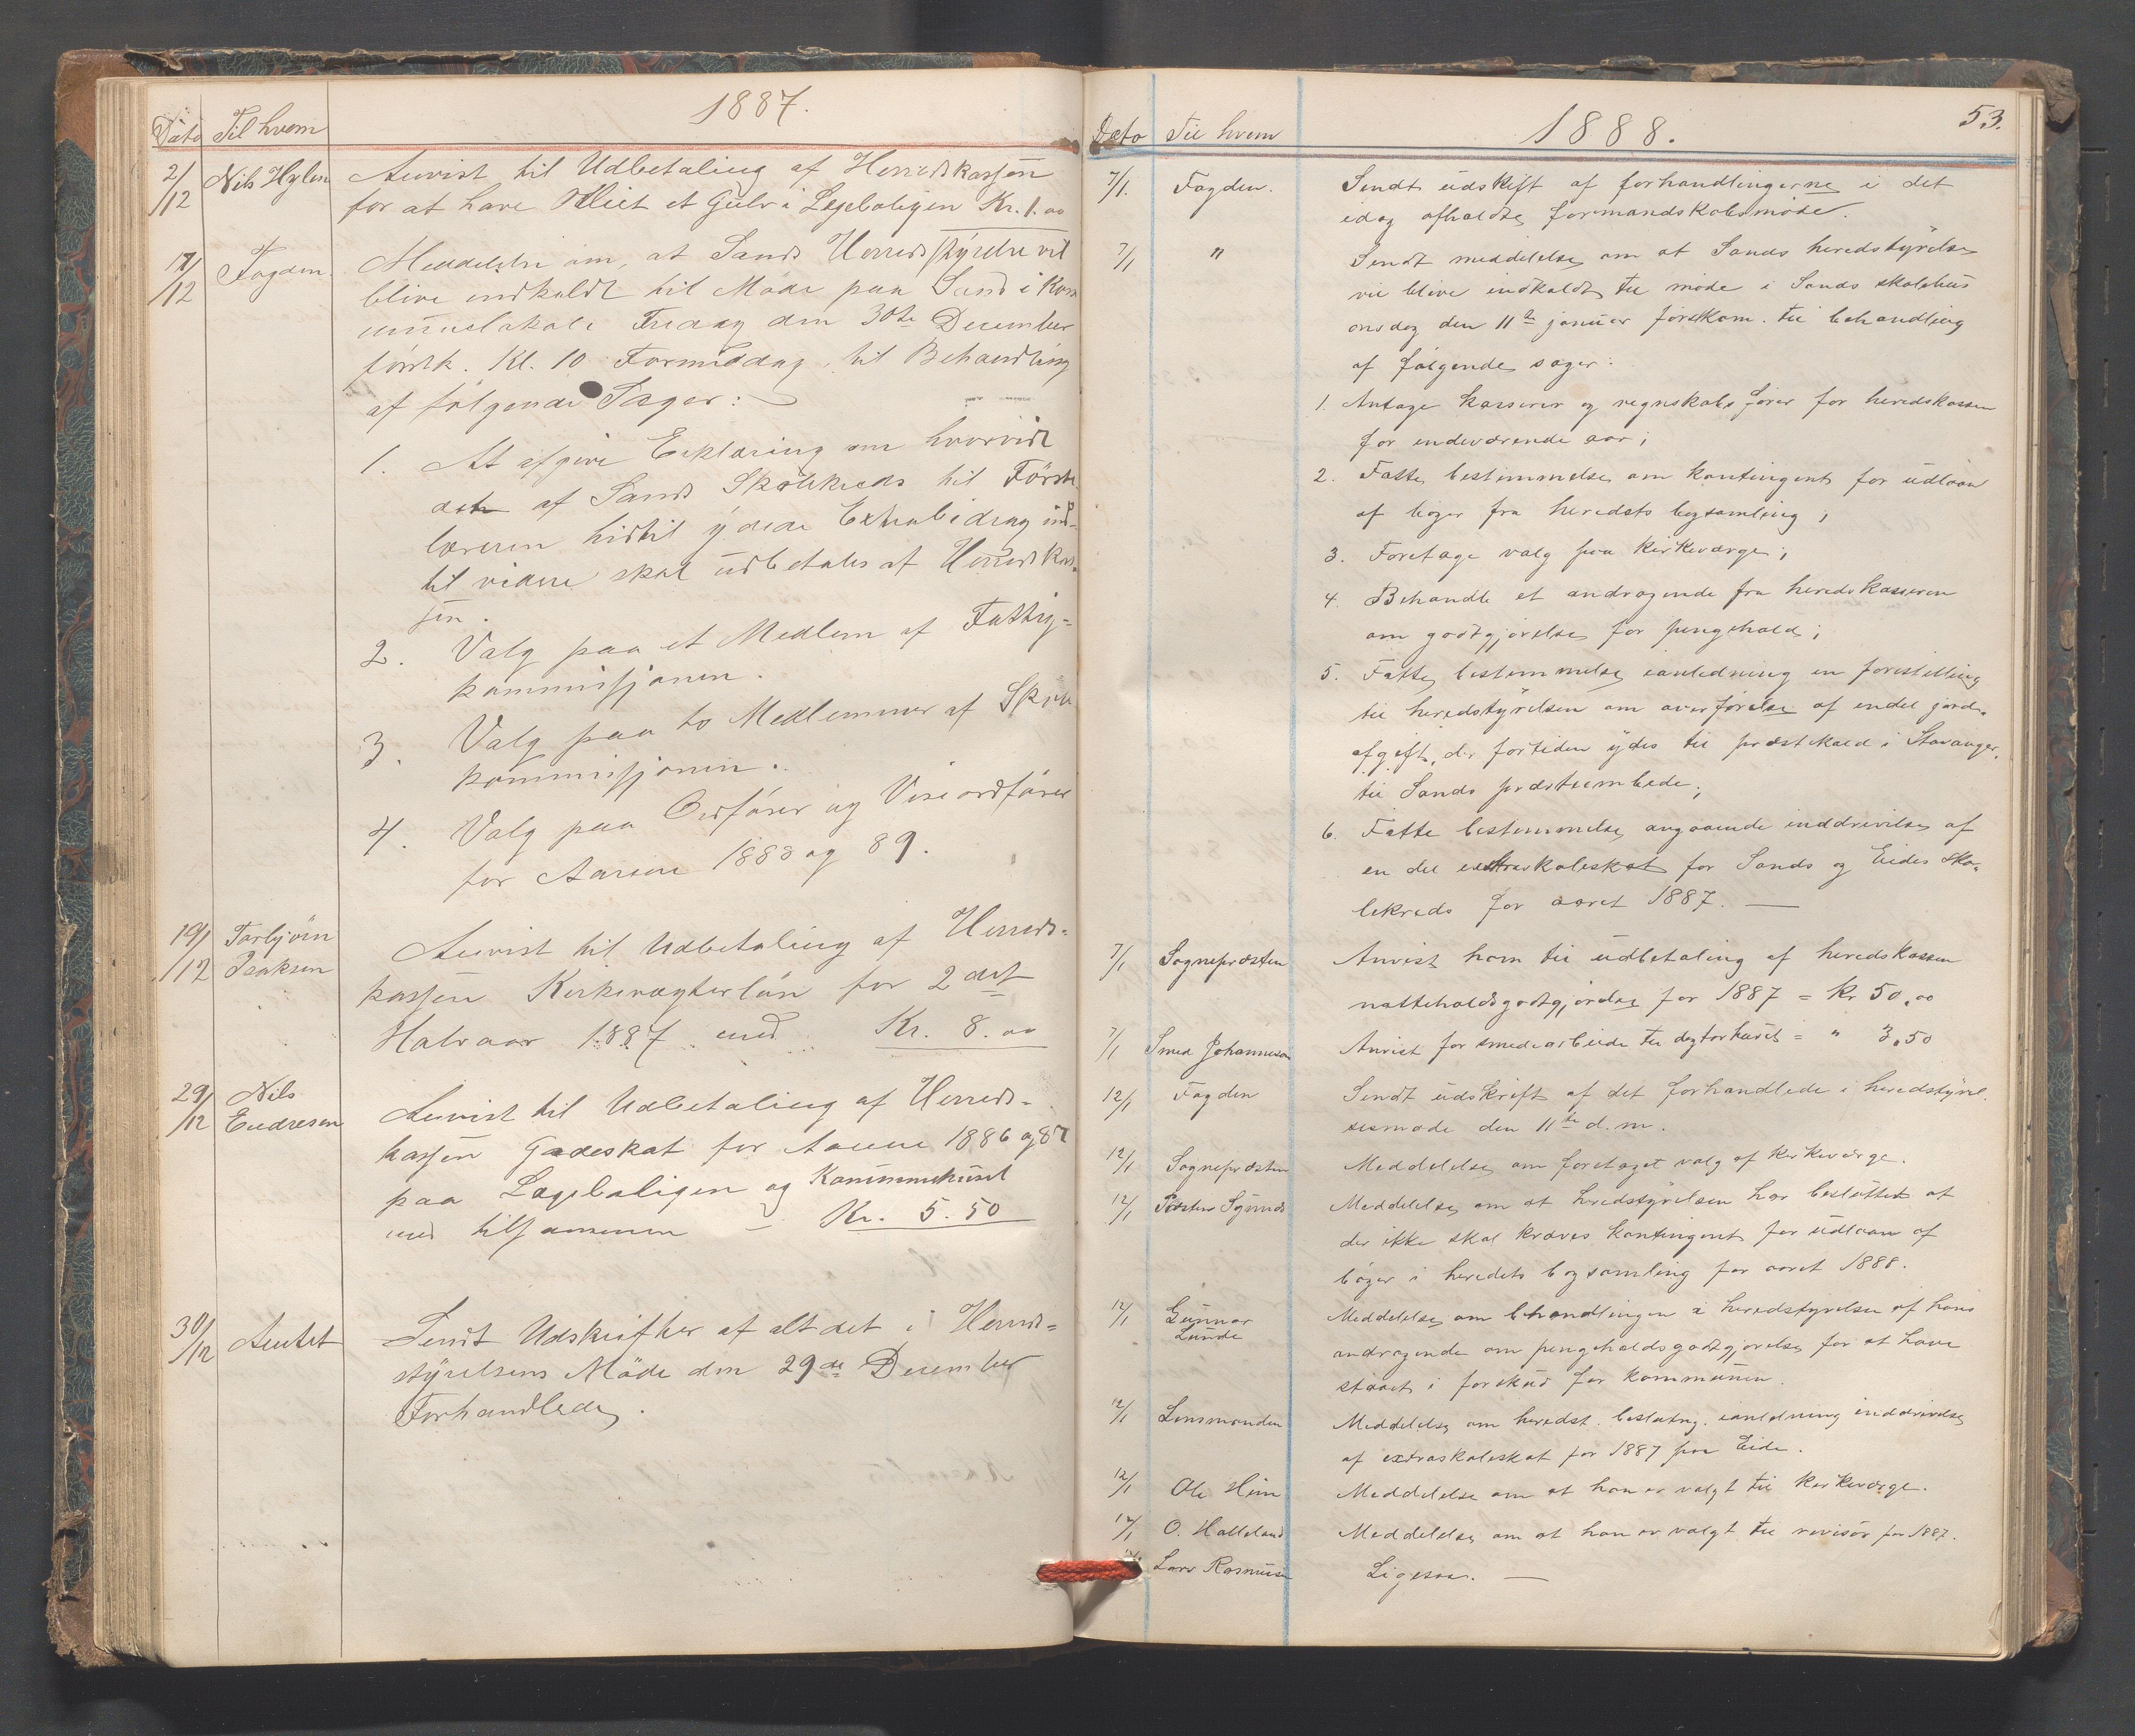 1887.
Dato Til hvem
2/12 Nils Hylen Anvist til Udbetaling af Herredskassen
for at have Olliet et Gulv i Legeboligen Kr. 1.00
17/12 Fogden Meddelelse om, at Sands Herredsstyrelse vil
blive indkaldt til Møde paa Sand i Kom
muneslokale Fredag den 30te December
førstk. Kl. 10 Formiddag, til Behandling
af følgende Sager:
1. At afgive Erklæring om hvorvidt
det af Sands Skolekreds til Første
læreren hidtil ydede Extrabidrag ind-
til videre skal udbetales af Herredskas-
sen.
2. Valg paa et Medlem af Fattig-
kommissjonen.
3. Valg paa to Medlemmer af Skole
kommissjonen.
4. Valg paa Ordfører og Viseordfører
for Aarene 1888 og 89.
19/12 Torbjörn Isaksen Anvist til Udbetaling af Herreds-
kassen Kirkevægterløn for 2det
Halvaar 1887 med Kr. 8.00
29/12 Nils Endresen Anvist til Udbetaling af Herreds-
kassen Gadeskat for Aarene 1886 og 87
paa Lægeboligen og Kommunehuset
med tilsammen – Kr. 5.50
30/12 Amtet Sendt Udskrifter af alt det i Herreds-
styrelsens Møde den 29de December
Forhandlede.
53.
1888.
Dato Til hvem
7/1. Fogden. Sendt udskift af forhandlingerne i det
idag afholdte formandskabsmøde.
7/1 " Sendt meddelelse om at Sands heredstyrelse
vil blive indkaldt til møde i Sands skolehus
onsdag den 11te januar førstkom. til behandling
af følgende sager:
1. Antage kasserer og regnskabsfører for heredskassen
for indeværende aar;
2. Fatte bestemmelse om kontingent for udlaan
af bøger fra heredets bogsamling;
3. Foretage valg paa kirkeværge;
4. Behandle et andragende fra heredskasseren
om godtgjørelse for pengehold;
5. Fatte bestemmelse ianledning en forestilling
til heredstyrelsen om overførelse af endel jord-
afgift, der fortiden ydes til præstekald i Stavanger,
til Sands præsteembede;
6. Fatte bestemmelse angaaende inddrivelse af
en del extraskoleskat for Sands og Eides sko-
lekreds for aaret 1887. —
7/1 Sognepræsten Anvist ham til udbetaling af heredskassen
natteholdsgodtgjørelse for 1887 = Kr 50.00
7/1 Smed Johannesen Anvist for smedearbeide til doktorhuset = " 3.50
12/1 Fogden Sendt udskrift af det forhandlede i heredstyrel-
sesmøde den 11te d.m.
12/1 Sognepræsten Meddelelse om foretaget valg af kirkeværge.
12/1 Meddelelse om at heredstyrelsen har besluttet at
der ikke skal kræves kontingent for udlaan af
bøger i heredets bogsamling for aaret 1888.
12/1 Gunnar Lunde Meddelelse om behandlingen i heredstyrelsen af hans
andragende om pengeholdsgodtgjørelse for at have
staaet i forskud for kommunen.
12/1 Lensmanden Meddelelse om heredst. beslutng. ianledning inddrivelse
af extraskoleskat for 1887 paa Eide.
12/1 Ole Heim Meddelelse om at han er valgt til kirkeværge.
12/1 O. Halleland Meddelelse om at han er valgt til revisor for 1887.
Lars Rasmusen Ligesaa. —